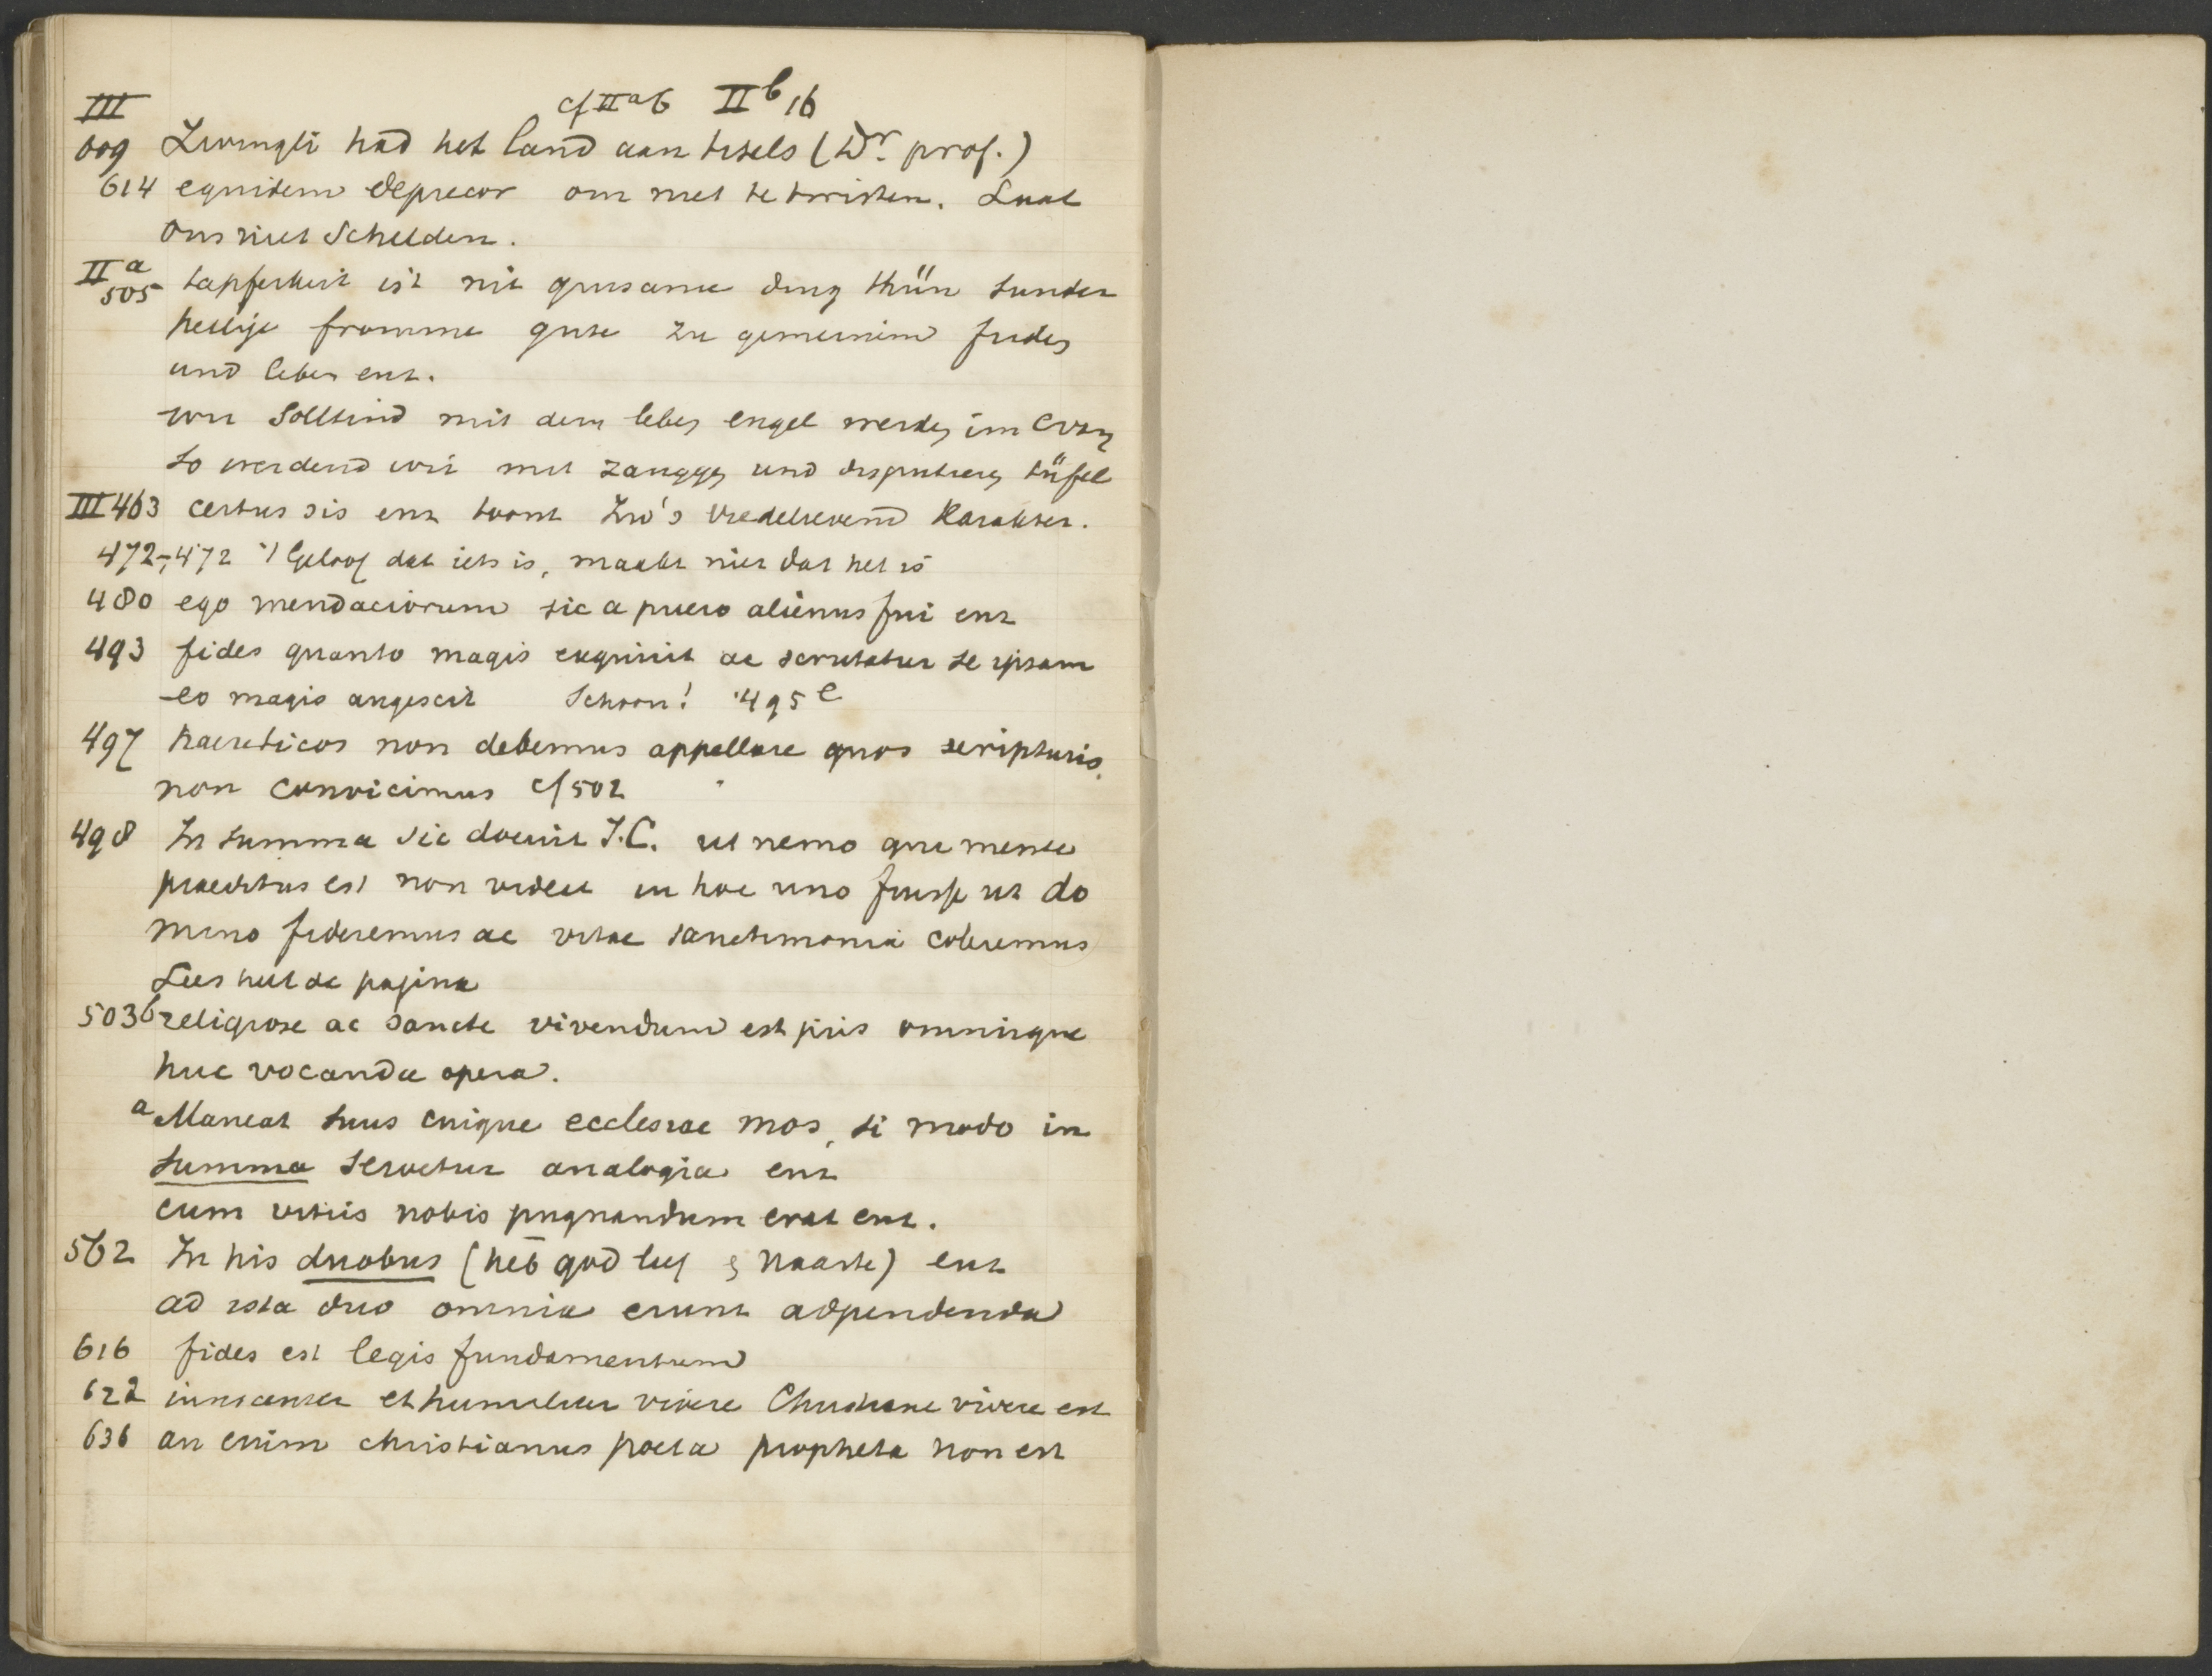 III cf IIa6 IIb 16
609 Zwingli had het land aan titels (Dr. prof.)
614 equidem deprecor om niet te twisten. Laat
ons niet schelden.
IIa 505 tapferkeit ist nit grusame ding thün sunder
heilige fromme gute zu gemeinem frides
und leben enz.
wir solltind mit dem leben engel werden im Evang
so werdend wir mit zanggen und disputieren tüfel
III 463 certus sis enz toont Zw's vredelievend karakter.
472-, 472 Geloof dat iets is, maakt niet dat het is
480 ego mendaciorum sic a puero alienus fui enz
493 fides quanto magis exquirit ac scrutatur se ipsam
eo magis augescit Schoon! 495 e
497 haereticos non debemus appellare quos scripturis
non convicimus cf 502
498 In summa sic docuit J.C. ut nemo qui mente
praeditus est non videat in hoc uno fuisse ut do
mino fideremus ac vitae sanctimonia coleremus
Lees heel de pagina
503 b religiose ac sancte vivendum est piis omnisque
huc vocanda opera.
a Maneat suus cuique ecclesiae mos, si modo in
summa servetur analogia enz
cum vitiis nobis pugnandum erat enz.
562 In his duobus (heb god lief & naaste) enz
ad ista duo omnia erunt adpendenda
616 fides est legis fundamentum
622 innocenter et humiliter vivere Christiane vivere est
636 an enim christianus poeta propheta non est